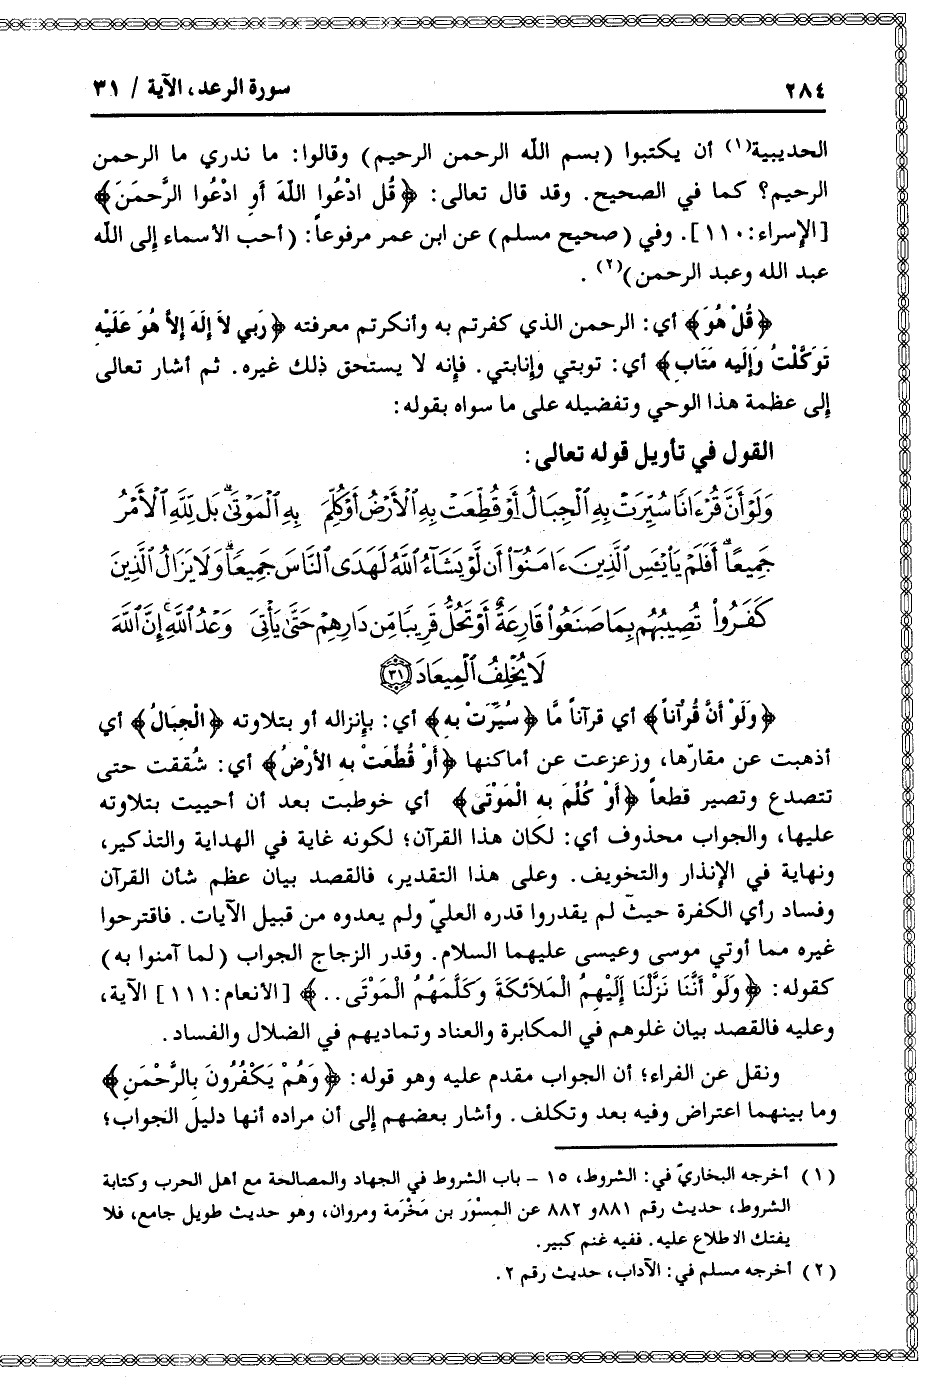 ٢٨٤
سورة الرعد، الآية / ٣١
الحديبية(١) أن يكتبوا (بسم اللّه الرحمن الرحيم) وقالوا: ما ندري ما الرحمن
الرحيم؟ كما في الصحيح. وقد قال تعالى: ﴿قُل ادْعُوا اللّهَ أَوِ ادْعُوا الرَّحمَنَ﴾
[الإسراء: ١١٠]. وفي (صحيح مسلم) عن ابن عمر مرفوعاً: (أحب الأسماء إلى اللّه
عبد الله وعبد الرحمن)(٢).
﴿قُلْ هُوَ﴾ أي: الرحمن الذي كفرتم به وأنكرتم معرفته ﴿رَبي لاَ إِلَهَ إِلاَّ هُوَ عَلَيْهِ
تَوَكَّلْتُ وَإِلَيه مَتَابِ﴾ أي: توبتي وإنابتي. فإنه لا يستحق ذلك غيره. ثم أشار تعالى
إلى عظمة هذا الوحي وتفضيله على ما سواه بقوله:
القول في تأويل قوله تعالى:
وَلَوْ أَنَّ قُرْءَانًا سُيِّرَتْ بِهِ ٱلْجِبَالُ أَوْ قُطِّعَتْ بِهِ ٱلْأَرْضُ أَوْ كُلِّمَ بِهِ ٱلْمَوْتَىٰ ۗ بَل لِّلَّهِ ٱلْأَمْرُ
جَمِيعًا ۗ أَفَلَمْ يَا۟يْـَٔسِ ٱلَّذِينَ ءَامَنُوٓا۟ أَن لَّوْ يَشَآءُ ٱللَّهُ لَهَدَى ٱلنَّاسَ جَمِيعًا ۗ وَلَا يَزَالُ ٱلَّذِينَ
كَفَرُوا۟ تُصِيبُهُم بِمَا صَنَعُوا۟ قَارِعَةٌ أَوْ تَحُلُّ قَرِيبًا مِّن دَارِهِمْ حَتَّىٰ يَأْتِىَ وَعْدُ ٱللَّهِ ۚ إِنَّ ٱللَّهَ
لَا يُخْلِفُ ٱلْمِيعَادَ ٣١
﴿وَلَوْ أَنَّ قُرْآناً﴾ أي قرآناً مَّا ﴿سُيِّرَتْ بِهِ﴾ أي: بإنزاله أو بتلاوته ﴿الْجِبَالُ﴾ أي
أذهبت عن مقارّها، وزعزعت عن أماكنها ﴿أَوْ قُطِّعَتْ بِهِ الأَرْضُ﴾ أي: شُققت حتى
تتصدع وتصير قطعاً ﴿أَوْ كُلِّمَ بِهِ الْمَوْتَى﴾ أي خوطبت بعد أن أحييت بتلاوته
عليها، والجواب محذوف أي: لكان هذا القرآن؛ لكونه غاية في الهداية والتذكير،
ونهاية في الإنذار والتخويف. وعلى هذا التقدير، فالقصد بيان عظم شأن القرآن
وفساد رأي الكفرة حيث لم يقدروا قدره العليّ ولم يعدوه من قبيل الآيات. فاقترحوا
غيره مما أوتي موسى وعيسى عليهما السلام. وقدر الزجاج الجواب (لما آمنوا به)
كقوله: ﴿وَلَوْ أَنَّنَا نَزَّلْنَا إِلَيْهِمُ الْمَلاَئكَةَ وَكَلَّمَهُمُ الْمَوْتَى..﴾ [الأنعام: ١١١] الآية،
وعليه فالقصد بيان غلوهم في المكابرة والعناد وتماديهم في الضلال والفساد.
ونقل عن الفراء؛ أن الجواب مقدم عليه وهو قوله: ﴿وَهُمْ يَكْفُرُونَ بِالرَّحْمَنِ﴾
وما بينهما اعتراض وفيه بعد وتكلف. وأشار بعضهم إلى أن مراده أنها دليل الجواب؛
(١) أخرجه البخاريّ في: الشروط، ١٥ - باب الشروط في الجهاد والمصالحة مع أهل الحرب وكتابة
الشروط، حديث رقم ٨٨١ و ٨٨٢ عن المِسْوَر بن مَخْرَمة ومروان، وهو حديث طويل جامع، فلا
يفتك الاطلاع عليه. ففيه غنم كبير.
(٢) أخرجه مسلم في: الآداب، حديث رقم ٢.